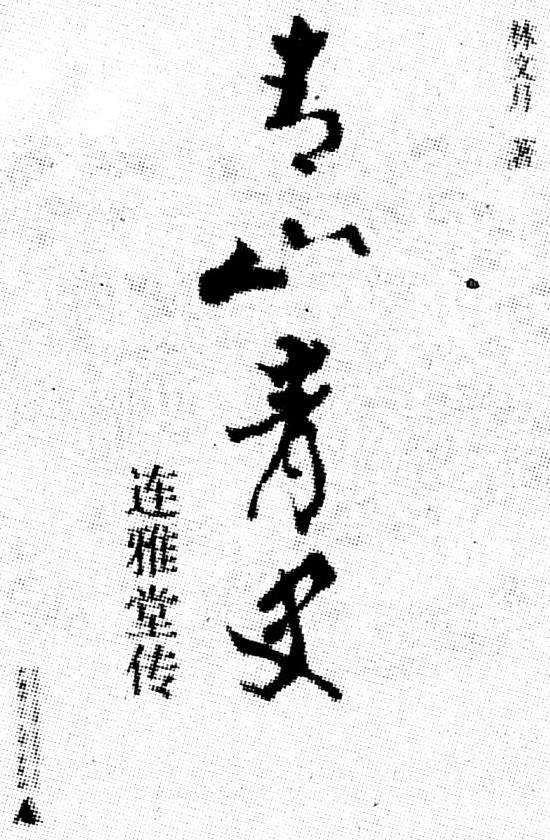 林文月 著
青山青史
连雅堂传